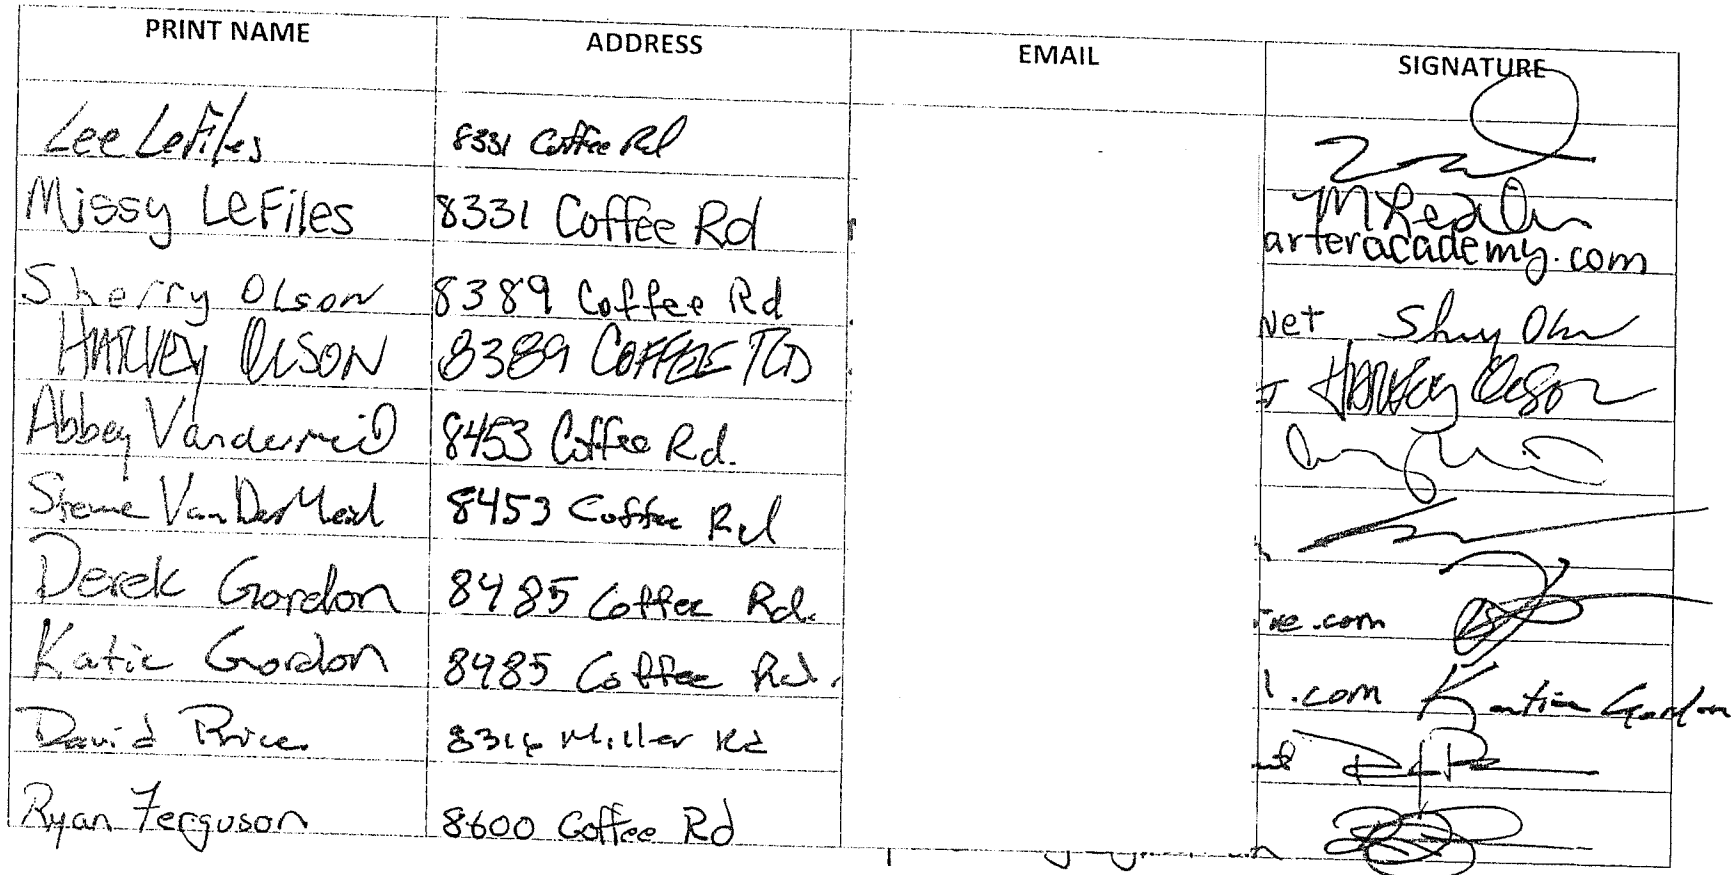 PRINT NAME ADDRESS EMAIL SIGNATURE
Lee LeFiles 8331 Coffee Rd
Missy LeFiles 8331 Coffee Rd
arteracademy.com
Sherry Olson 8389 Coffee Rd net Sherry Olson
HARVEY OLSON 8389 COFFEE RD HARVEY Olson
Abbey Vandermeid 8453 Coffee Rd.
Steve VanDerMeid 8453 Coffee Rd
Derek Gordon 8485 Coffee Rd. .com
Katie Gordon 8485 Coffee Rd. l.com Katie Gordon
David Price 8316 Miller Rd
Ryan Ferguson 8600 Coffee Rd